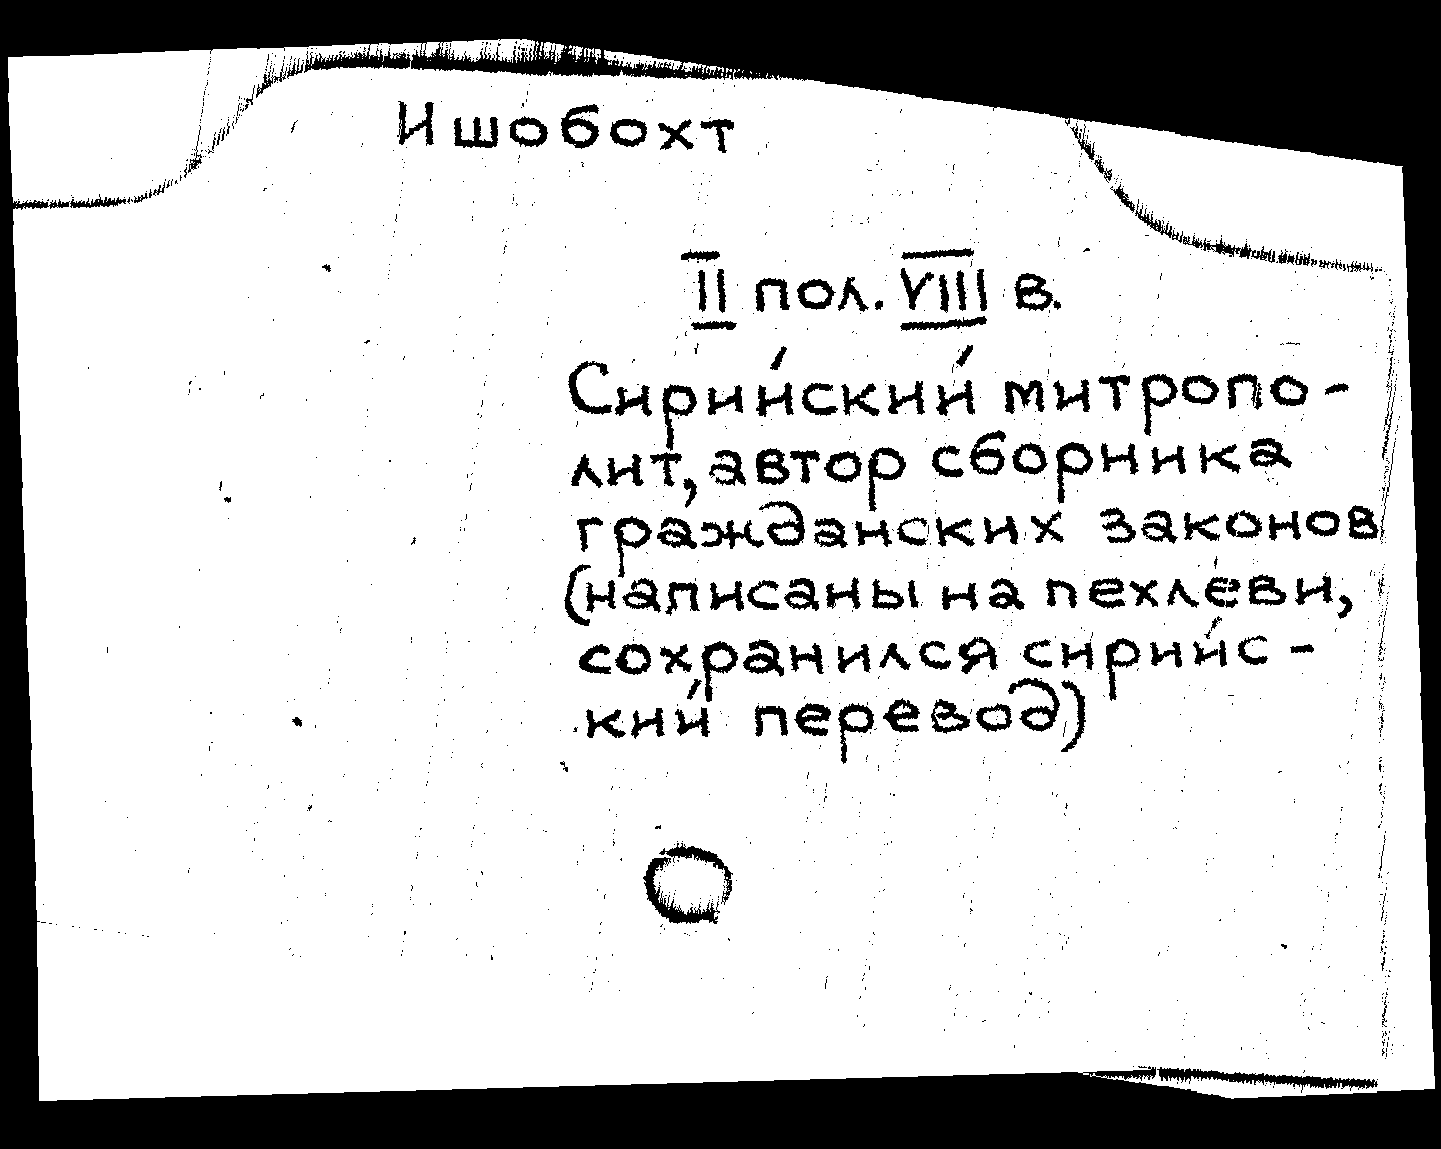 Ишобохт
II пол. VIII в.
Сирийский митропо-
лит, автор сборника
гражданских законов
(написаны на пехлеви,
сохранился сирийс-
кий перевод)